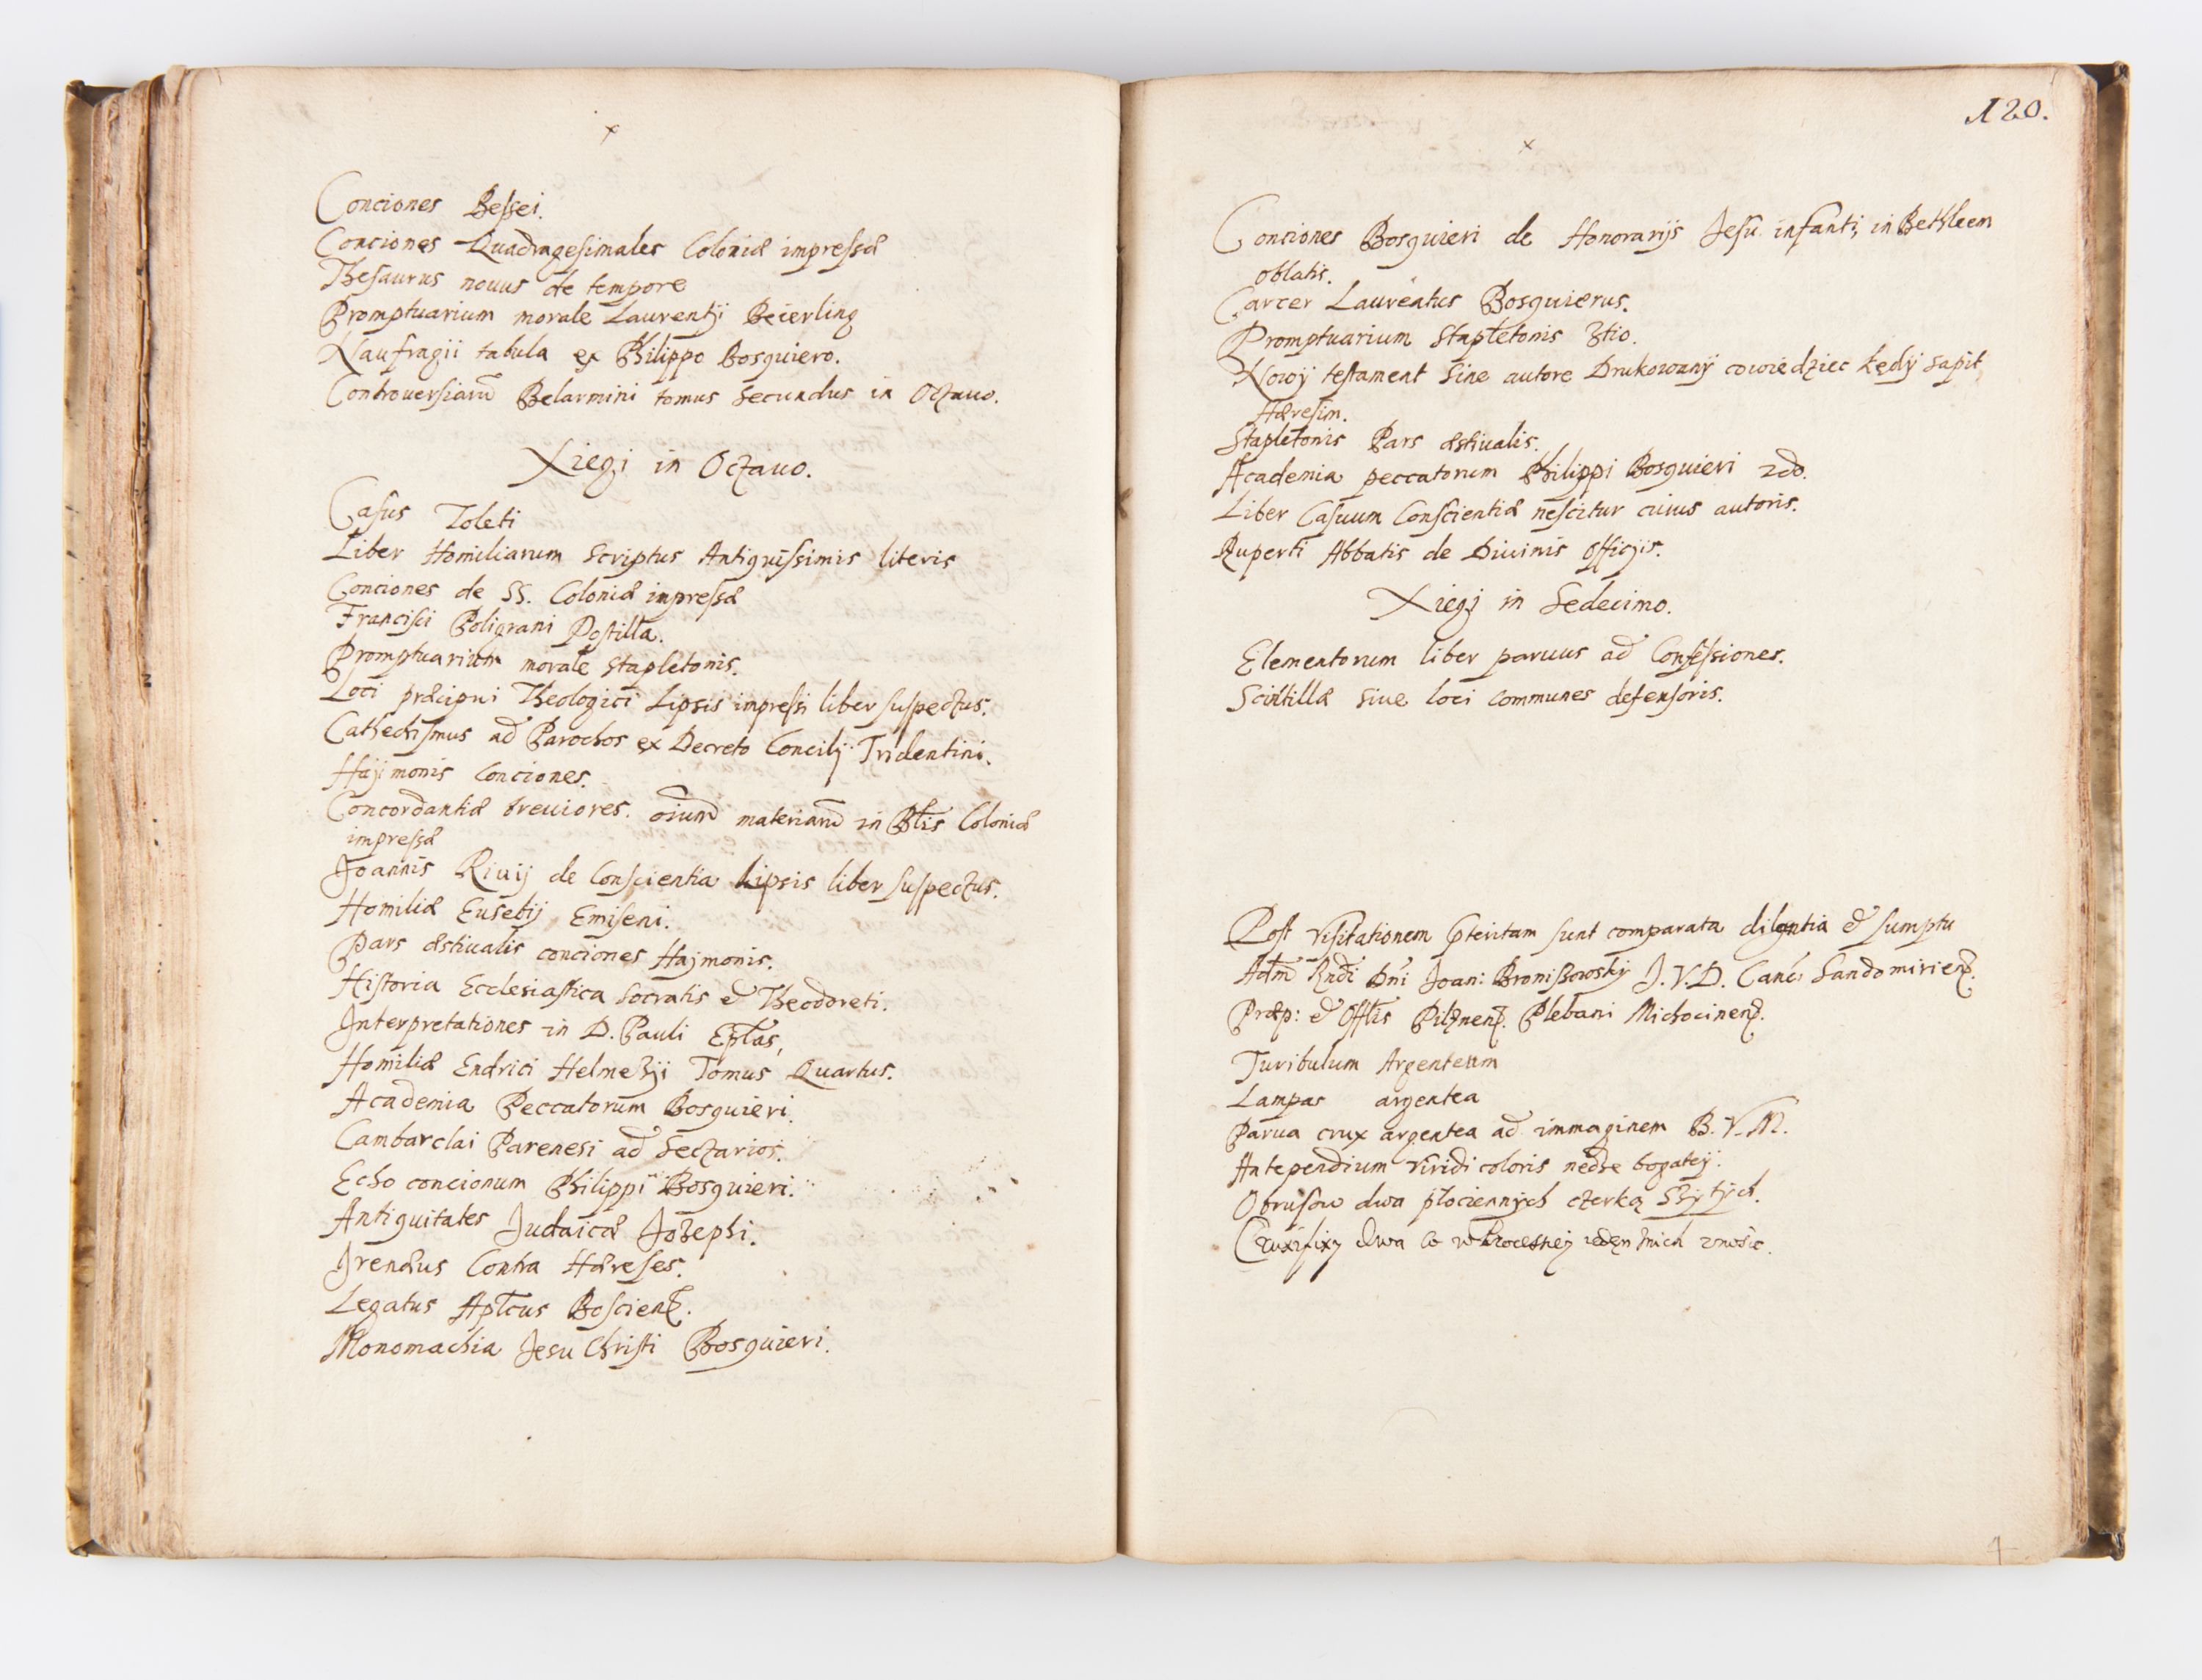 x
Conciones Beſsei.
Conciones Quadragesimales Coloniæ impreſsæ
Theſaurus nouus de tempore
Promptuarium morale Laurentÿ Beierling
Naufragii tabula ex Philippo Bosquiero.
Controuersiarũ Belarmini tomus Secundus in Octauo.
Xiegi in Octauo.
Caſus Toleti
Liber Homiliarum scriptus Antiquiſsimis literis
Conciones de SS. Coloniæ impreſsæ
Francisci Poligrani Postilla.
Promptuarium morale Stapletonis.
Loci præcipui Theologici Lipsis impreſsi liber ſuſpectus.
Cathechiſmus ad Parochos ex Decreto Concilÿ Tridentini.
Haÿmonis Conciones.
Concordantiæ breuiores. oĩum materiarũ in Blĩs Coloniæ
impreſsæ
Joannis Riuÿ de Conſcientia Lipsis liber ſuſpectus.
Homiliæ Eusebÿ Emiseni.
Pars æstiualis conciones Hajmonis.
Hiſtoria Ecclesiaſtica Socratis & Theodoreti.
Interpretationes in D. Pauli Epl̃as,
Homiliæ Endrici Helmezÿi Tomus Quartus.
Academia Peccatorum Bosquieri.
Cambarclai Parenesi ad Sectarios.
Echo concionum Philippi Bosquieri.
Antiquitates Judaicæ Jozephi.
Irenæus Contra Hæreſes.
Legatus Apl̃cus Boscienẽ.
Monomachia Jesu Chriſti Bosquieri.
120.
x
Conciones Bosquieri de Honorarÿs Jeſu infanti, in Bethleem
oblatis.
Carcer Laureatus Bosquierus.
Promptuarium Stapletonis 3tio.
Nowÿ teſtament Sine autore Drukowanÿ cowiedziec kędÿ sapit
Hæreſim.
Stapletonis Pars æstiualis.
Academia peccatorum Philippi Bosquieri 2do.
Liber Caſuum Conſcientiæ neſcitur cuius autoris.
Ruperti Abbatis de Diuinis officÿs.
Xiegi in Sedecimo.
Elementorum liber paruus ad Confeſsiones.
Scintillæ siue loci communes defenſoris.
Poſt viſitationem p̃teritam ſunt comparata dilgntia & ſumptu
Adm̃ Rndi Dni Joan: Broniszowskÿ J.V.D. Canc: Sandomirien.
Præp: & Offlis Pilznen. Plebani Michocinen.
Turibulum Argenteum
Lampas argentea
Parua crux argentea ad immaginem B.V.M.
Antependium viridi coloris nedze bogateÿ.
Obruſow dwa płociennÿch czerką szÿtÿch.
Cruxifixy dwa co w Procesieÿ ieden znich znosic.